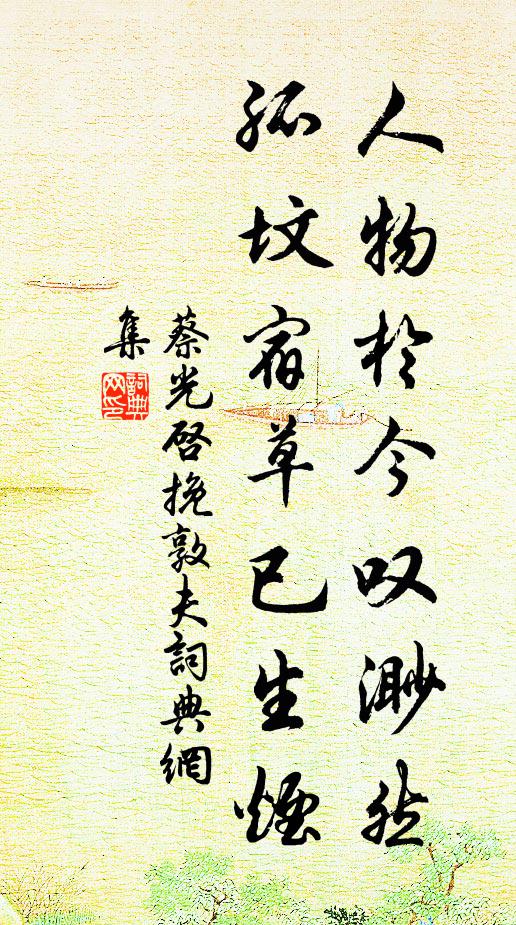 人物於今叹渺然
孤坟宿草已生煙
蔡光启挽敦夫詞典網
集
詞典
网印